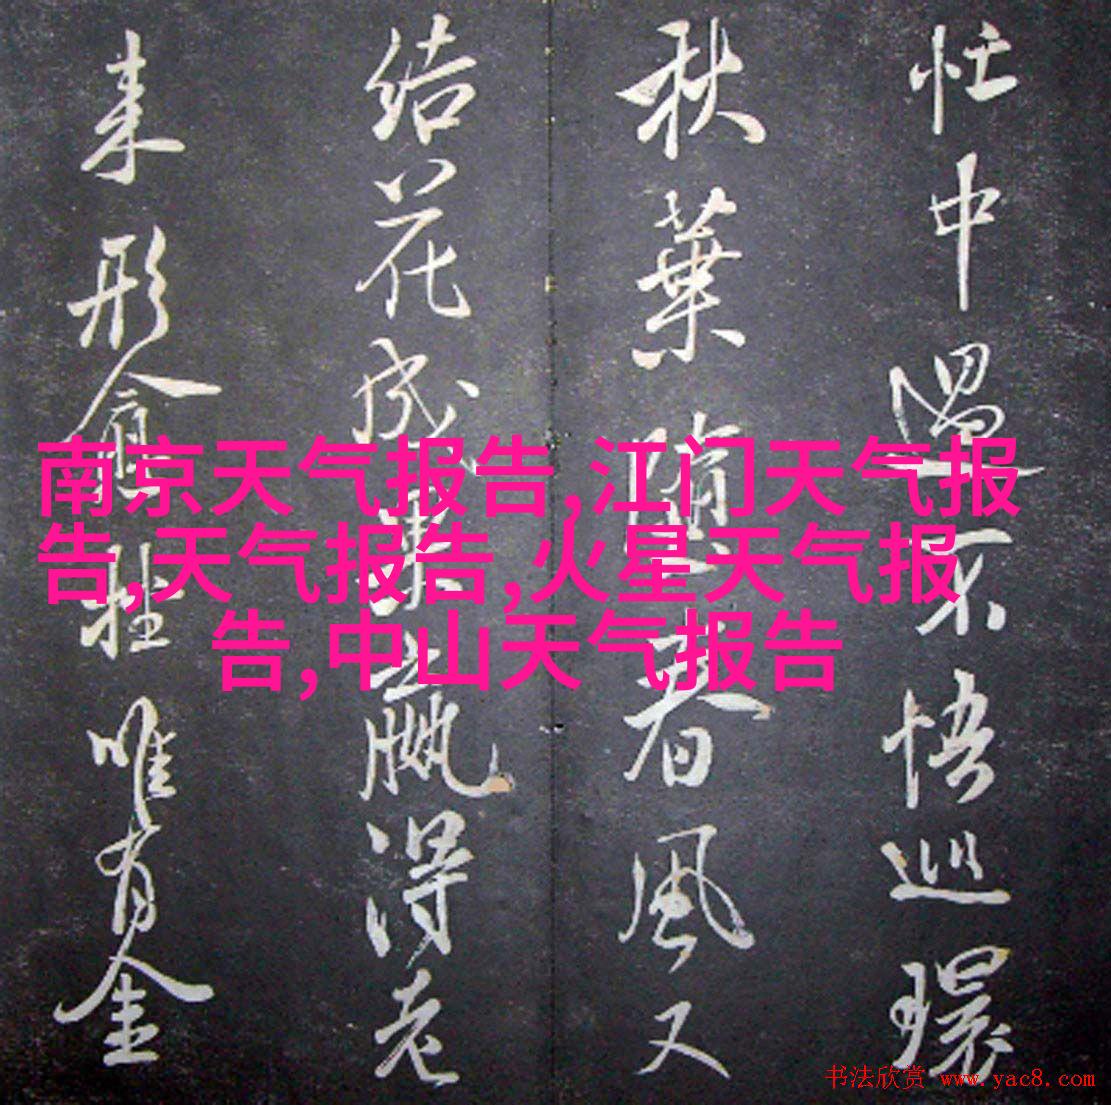 忙中過不悟巡環
秋葉隨春風又
結花成果贏得老
来形愈唯有金
南京天气报告,江门天气报
告,天气报告,火星天气报
告,中山天气报告
书法欣赏 www.yac8.com